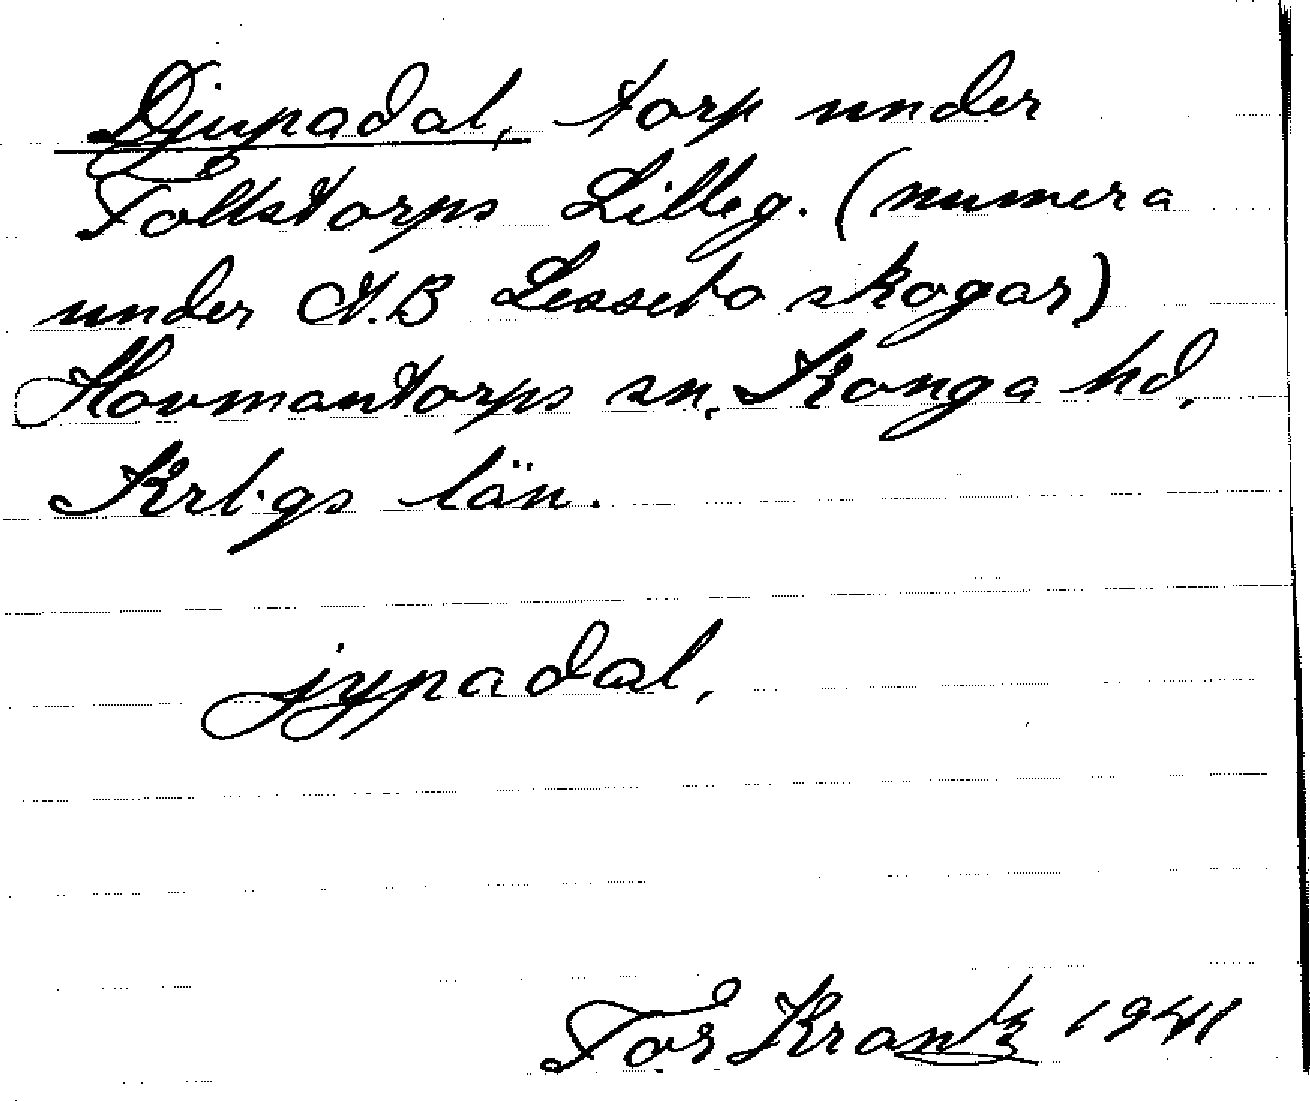 Djupadal, torp under
Tollstorps Lilleg. (numera
under A.B Lessebo skogar)
Hovmantorps sn, Konga hd,
Krb.gs län.
jypadal,
Tor Krantz 1941